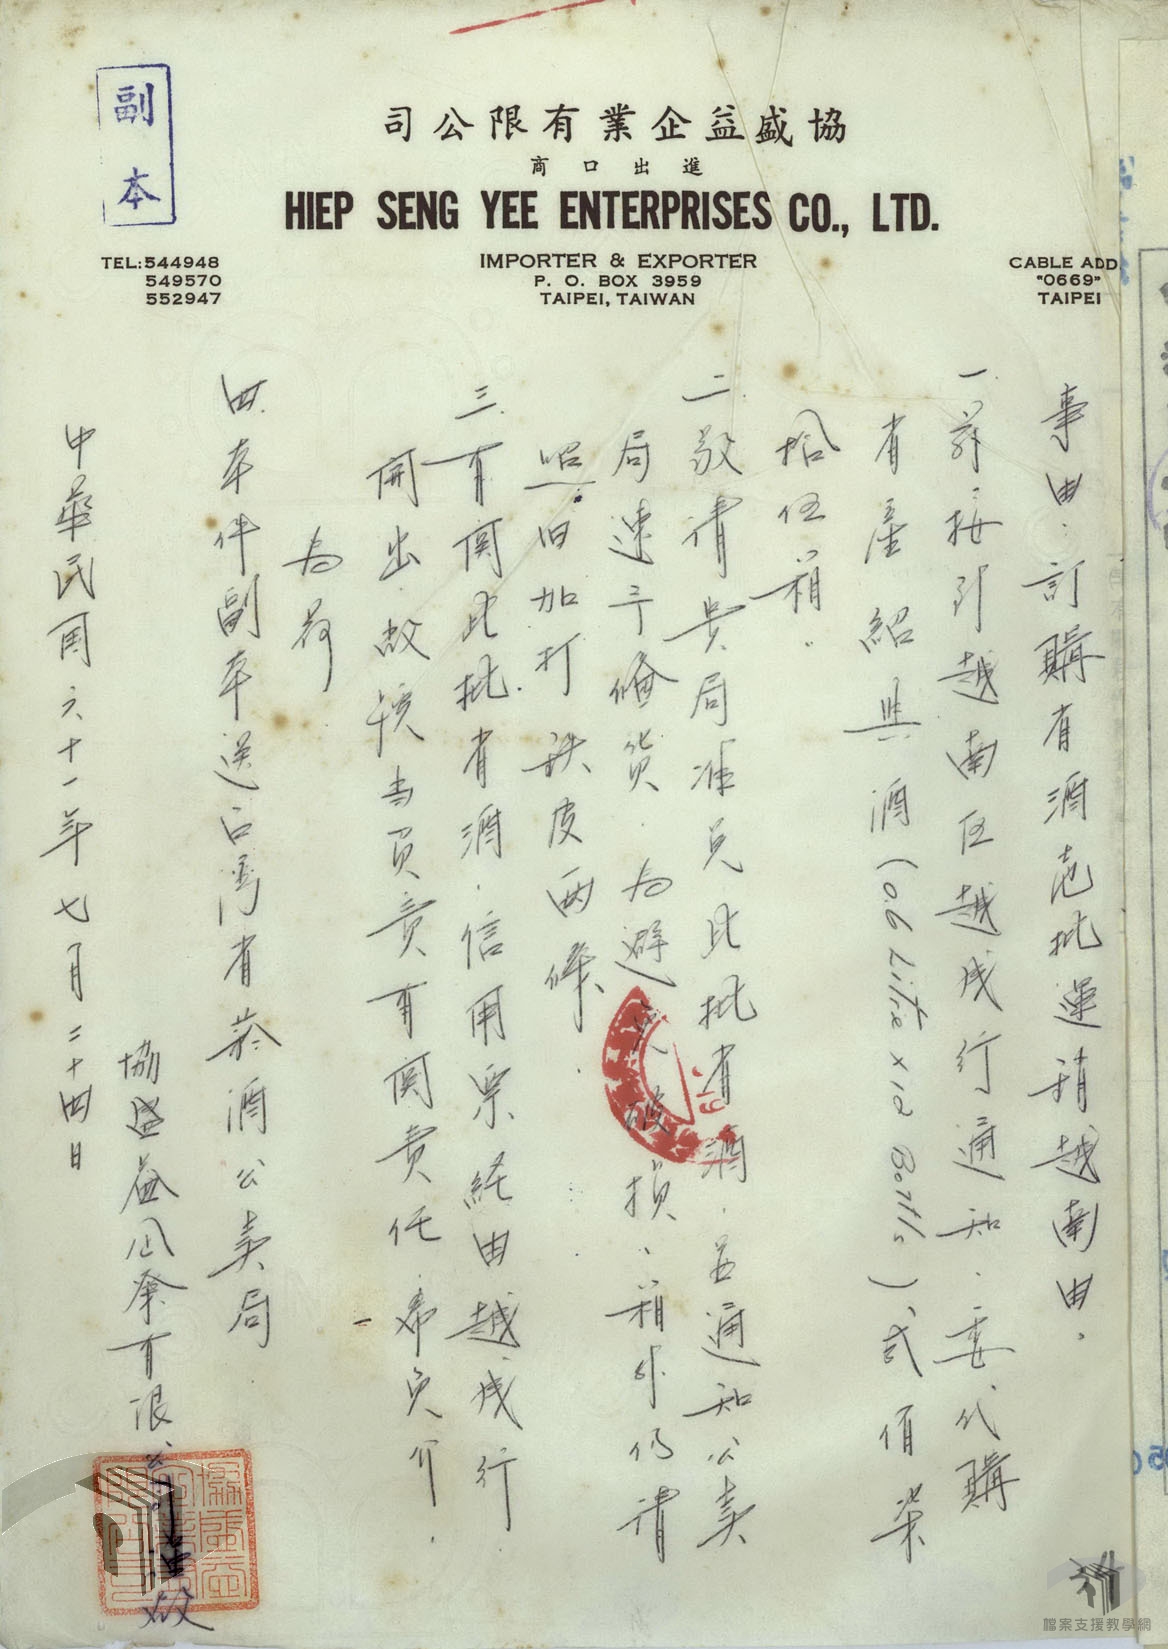 副本
司公限有業企益盛協
商口出進
HIEP SENG YEE ENTERPRISES CO., LTD.
TEL:544948
549570
552947
IMPORTER & EXPORTER
P. O. BOX 3959
TAIPEI, TAIWAN
CABLE ADD
"0669"
TAIPEI
事由：訂購省酒壱批運銷越南由。
一.茲接到越南区越成行通知.委代購
省產紹興酒(0.6 Litre x 12 Bottle)弍佰柒
拾伍箱.
二.敬請貴局准兌此批省酒.並通知公卖
局速予俻货.为避免破损、箱外仍请
照旧加打鉄皮两條.
三.有関此批省酒.信用票経由越成行
開出.故損当負責有関責任.希免介.
为荷
四.本件副本送台湾省菸酒公卖局
協盛益企業有限公司
中華民国六十一年七月二十四日
檔案支援教學網